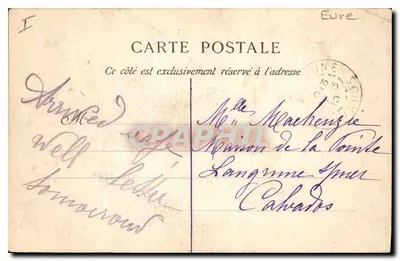 I
Eure
CARTE POSTALE
Ce côté est exclusivement réservé à l'adresse
Arrived safe
well letter
tomorrow
M
Mlle Mackenzie
Maison de la Pointe
Langrune s/mer
Calvados